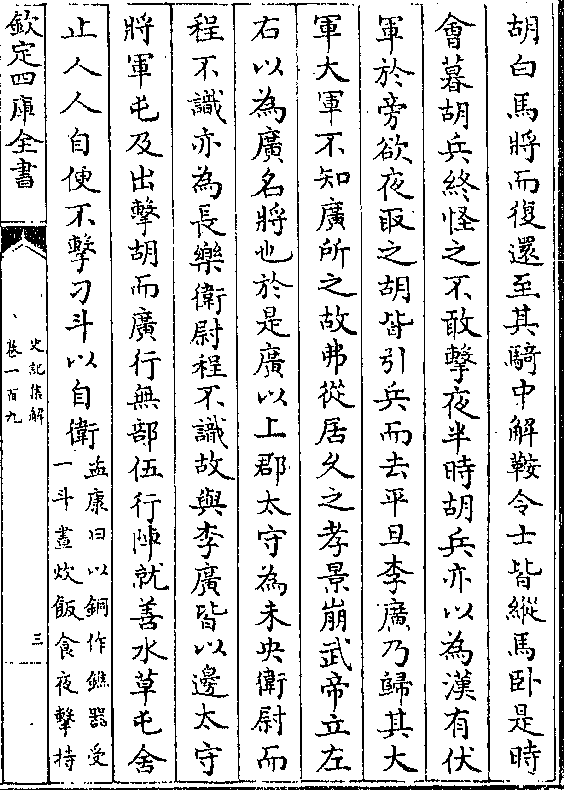 胡白馬將而復還至其騎中解鞍令士皆縱馬卧是時
會暮胡兵終怪之不敢擊夜半時胡兵亦以為漢有伏
軍於旁欲夜取之胡皆引兵而去平旦李廣乃歸其大
軍大軍不知廣所之故弗從居久之孝景崩武帝立左
右以為廣名將也於是廣以上郡太守為未央衛尉而
程不識亦為長樂衛尉程不識故與李廣皆以邊太守
將軍屯及出擊胡而廣行無部伍行陣就善水草屯舍
止人人自便不擊刁斗以自衛
孟康曰以銅作鐎器受
一斗晝炊飯食夜擊持
欽定四庫全書
史記集解
卷一百九
三